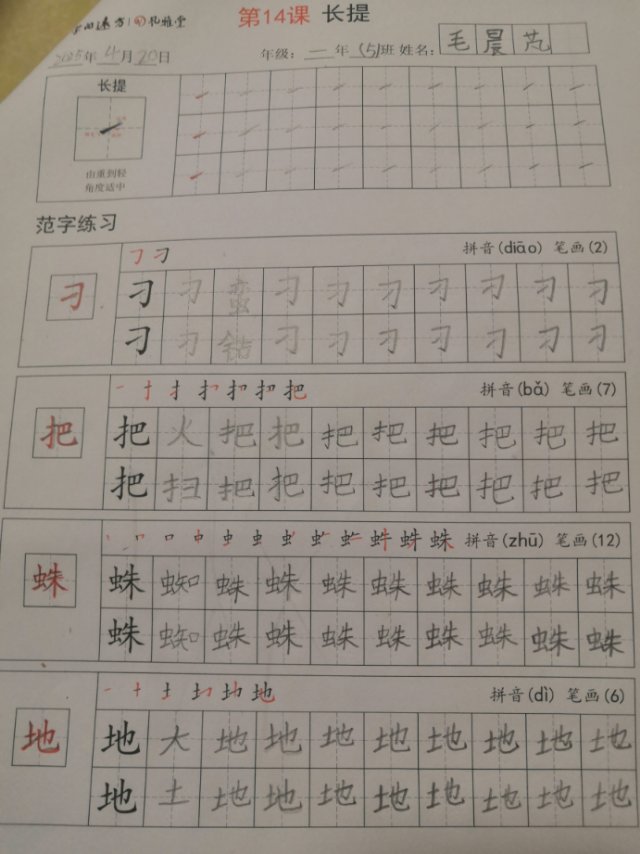 第14课 长提
2025年4月20日 年级：一年(5)班 姓名：毛晨芃
长提
由重到轻
角度适中
范字练习
刁 拼音(diāo) 笔画(2)
刁 刁 刁 蛮 刁 刁 刁 刁 刁 刁 刁
刁 刁 钻 刁 刁 刁 刁 刁 刁 刁
把 拼音(bǎ) 笔画(7)
把 把 火 把 把 把 把 把 把 把 把
把 扫 把 把 把 把 把 把 把 把
蛛 拼音(zhū) 笔画(12)
蛛 蛛 蜘 蛛 蛛 蛛 蛛 蛛 蛛 蛛 蛛
蛛 蜘 蛛 蛛 蛛 蛛 蛛 蛛 蛛 蛛
地 拼音(dì) 笔画(6)
地 地 大 地 地 地 地 地 地 地 地
地 土 地 地 地 地 地 地 地 地